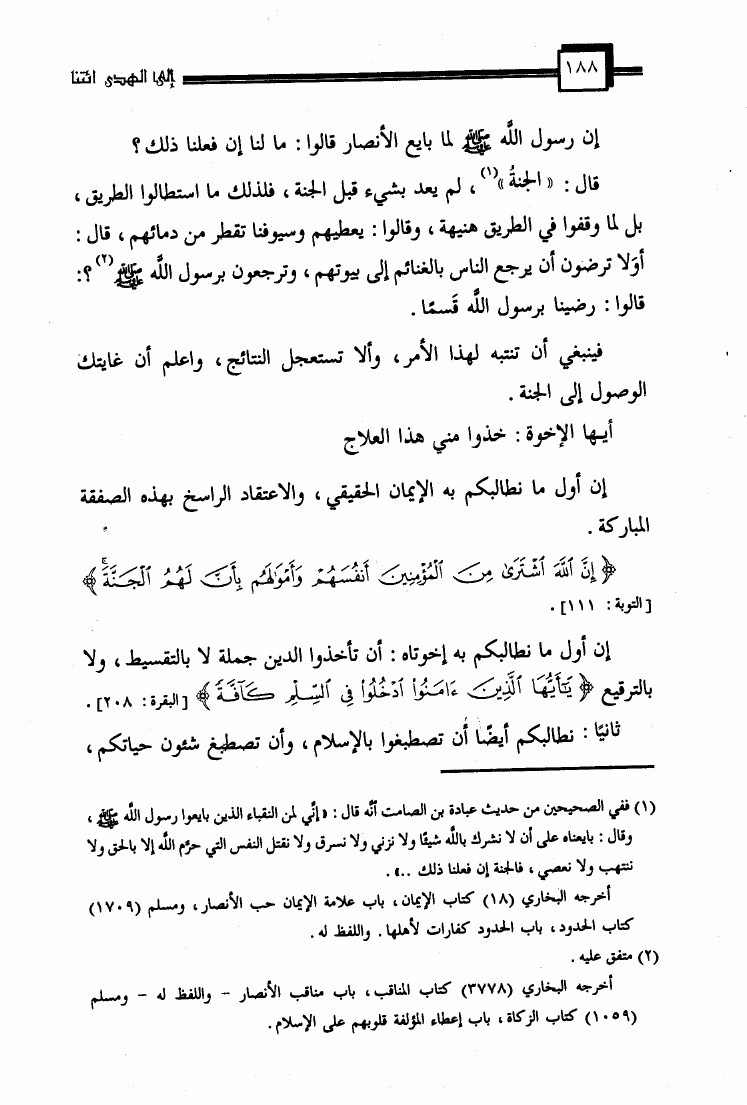 ١٨٨
إلى الهدى ائتنا
إن رسول اللَّه ﷺ لما بايع الأنصار قالوا : ما لنا إن فعلنا ذلك ؟
قال : « الجنةُ »(١) ، لم يعد بشيء قبل الجنة ، فلذلك ما استطالوا الطريق ،
بل لما وقفوا في الطريق هنيهة ، وقالوا : يعطيهم وسيوفنا تقطر من دمائهم ، قال :
أوَلا ترضون أن يرجع الناس بالغنائم إلى بيوتهم ، وترجعون برسول اللَّه ﷺ(٢) ؟:
قالوا : رضينا برسول اللَّه قَسمًا .
فينبغي أن تنتبه لهذا الأمر، وألا تستعجل النتائج، واعلم أن غايتك
الوصول إلى الجنة .
أيـها الإخوة : خذوا مني هذا العلاج
إن أول ما نطالبكم به الإيمان الحقيقي ، والاعتقاد الراسخ بهذه الصفقة
المباركة .
﴿ إِنَّ ٱللَّهَ ٱشْتَرَىٰ مِنَ ٱلْمُؤْمِنِينَ أَنفُسَهُمْ وَأَمْوَٰلَهُم بِأَنَّ لَهُمُ ٱلْجَنَّةَۚ ﴾
[التوبة : ١١١] .
إن أول ما نطالبكم به إخوتاه : أن تأخذوا الدين جملة لا بالتقسيط ، ولا
بالترقيع ﴿ يَٰٓأَيُّهَا ٱلَّذِينَ ءَامَنُوا۟ ٱدْخُلُوا۟ فِى ٱلسِّلْمِ كَآفَّةً ﴾ [البقرة : ٢٠٨] .
ثانيًا : نطالبكم أيضًا أن تصطبغوا بالإسلام ، وأن تصطبغ شئون حياتكم ،
(١) ففي الصحيحين من حديث عبادة بن الصامت أنَّه قال : «إنِّي لمن النقباء الذين بايعوا رسول اللَّه ﷺ ،
وقال : بايعناه على أن لا نشرك باللَّه شيئًا ولا نزني ولا نسرق ولا نقتل النفس التي حرَّم اللَّه إلا بالحق ولا
ننتهب ولا نعصي ، فالجنة إن فعلنا ذلك ..» .
أخرجه البخاري (١٨) كتاب الإيمان ، باب علامة الإيمان حب الأنصار ، ومسلم (١٧٠٩)
كتاب الحدود ، باب الحدود كفارات لأهلها . واللفظ له .
(٢) متفق عليه .
أخرجه البخاري (٣٧٧٨) كتاب المناقب ، باب مناقب الأنصار - واللفظ له - ومسلم
(١٠٥٩) كتاب الزكاة ، باب إعطاء المؤلفة قلوبهم على الإسلام .